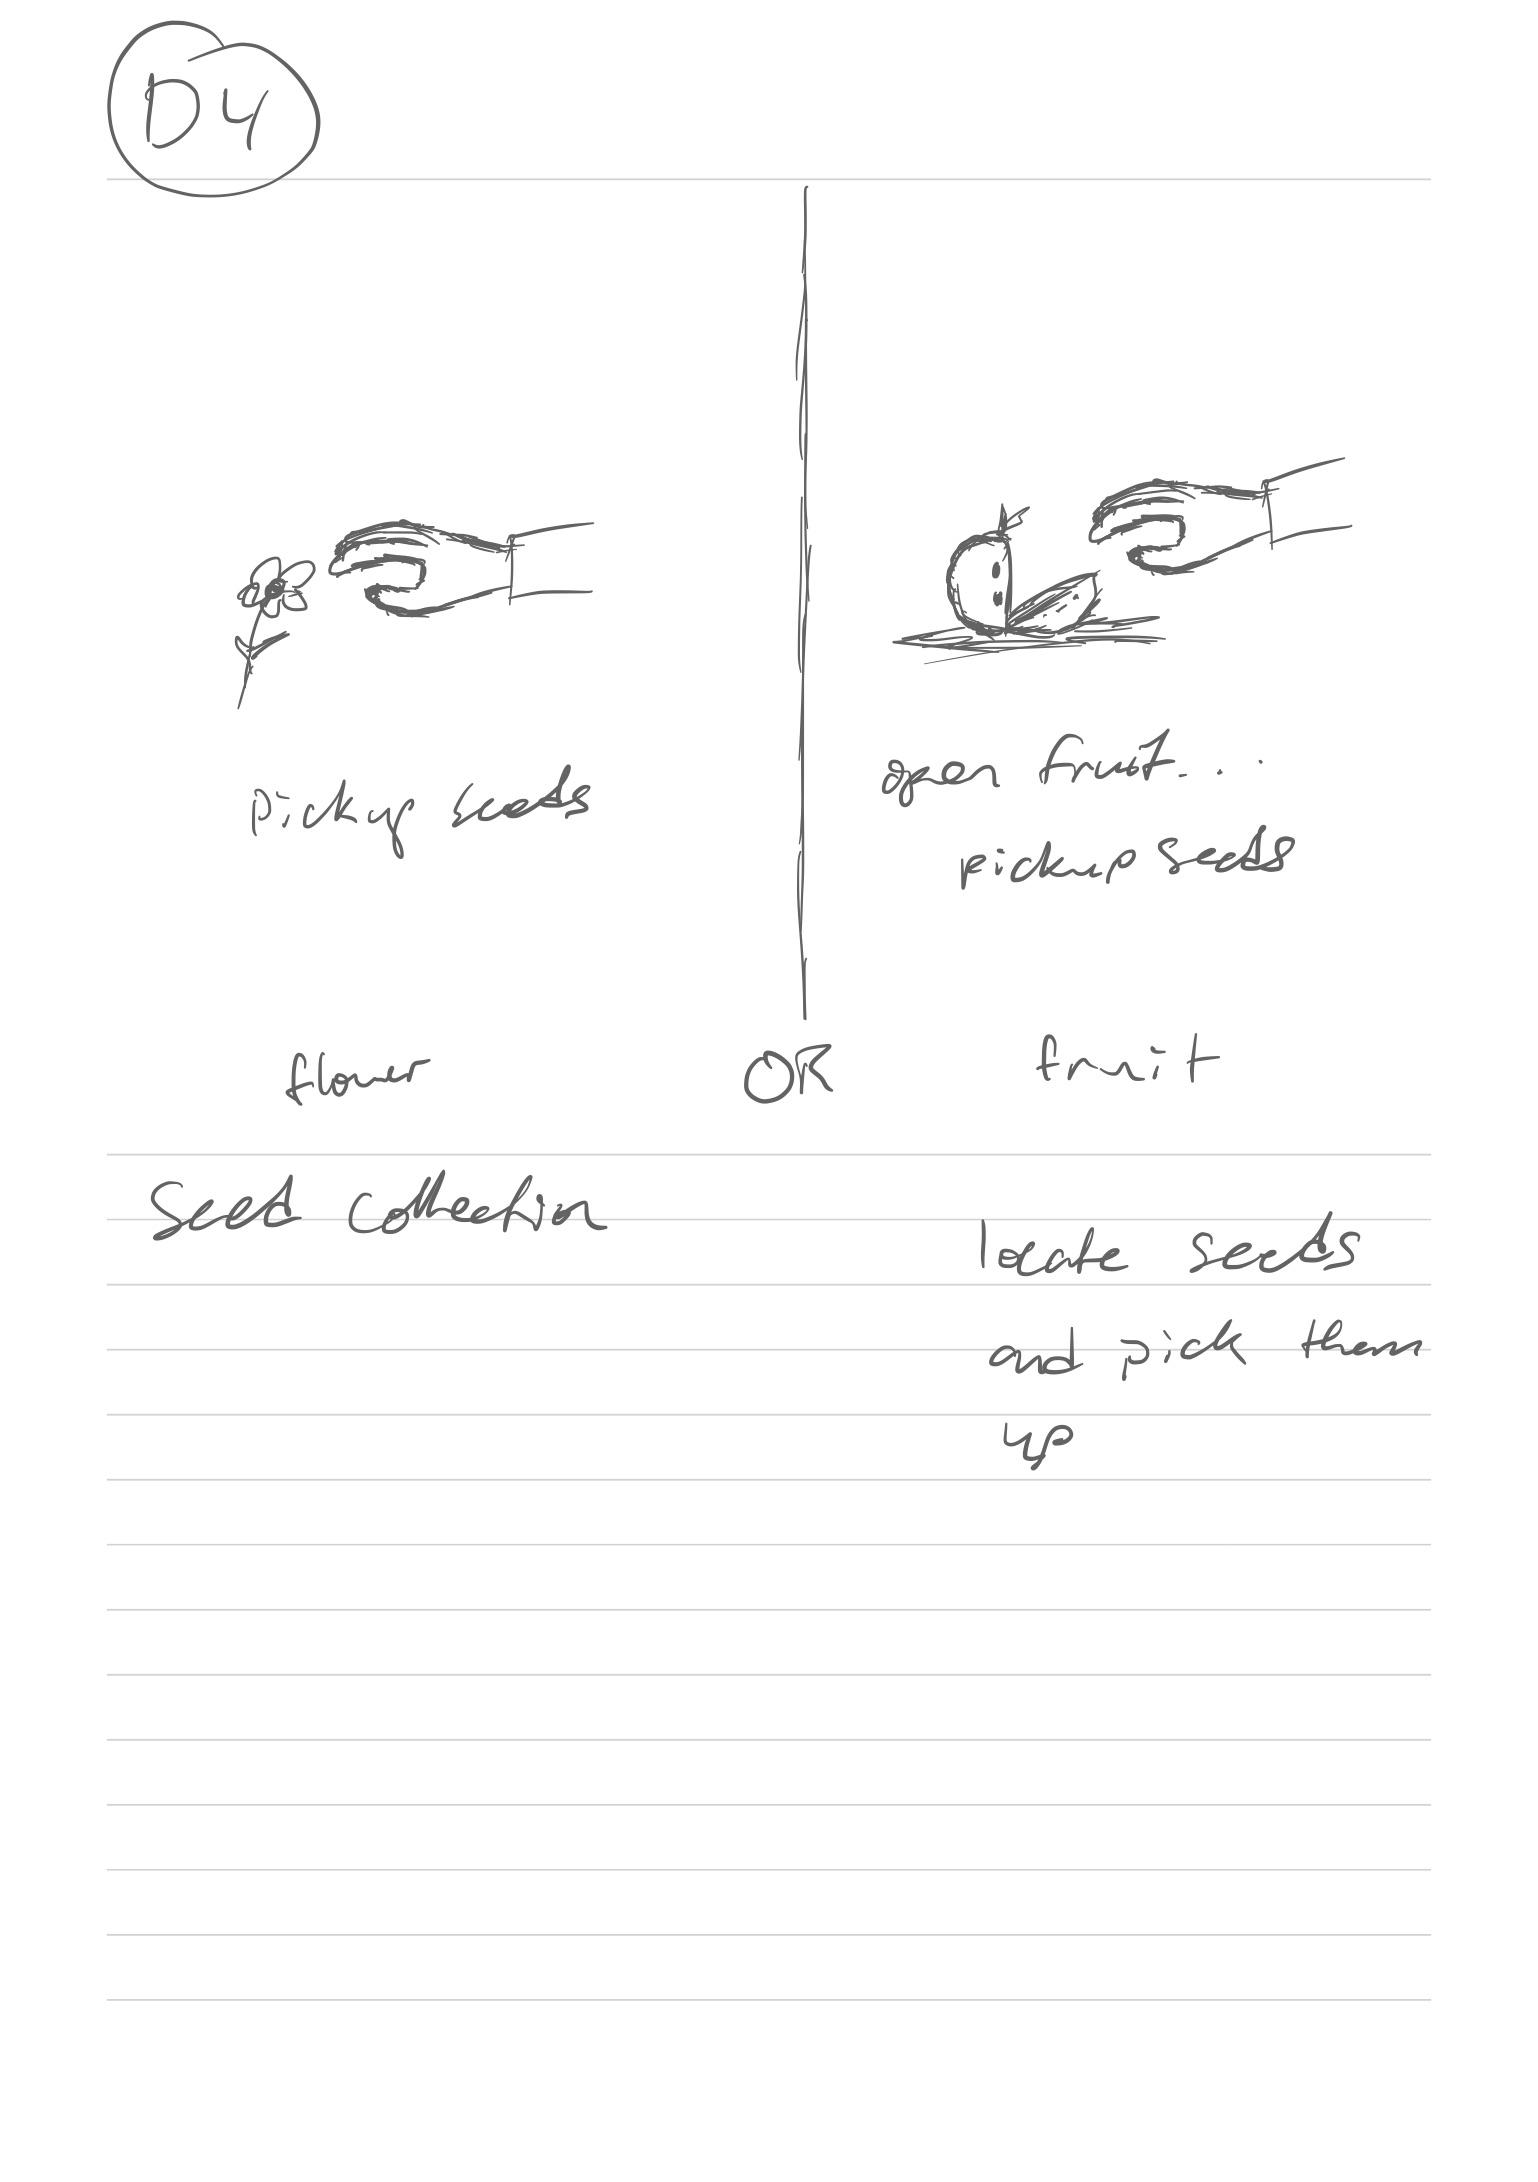 D4
pickup seeds
open fruit...
pickup seeds
flower OR fruit
Seed collection
locate seeds
and pick them
up